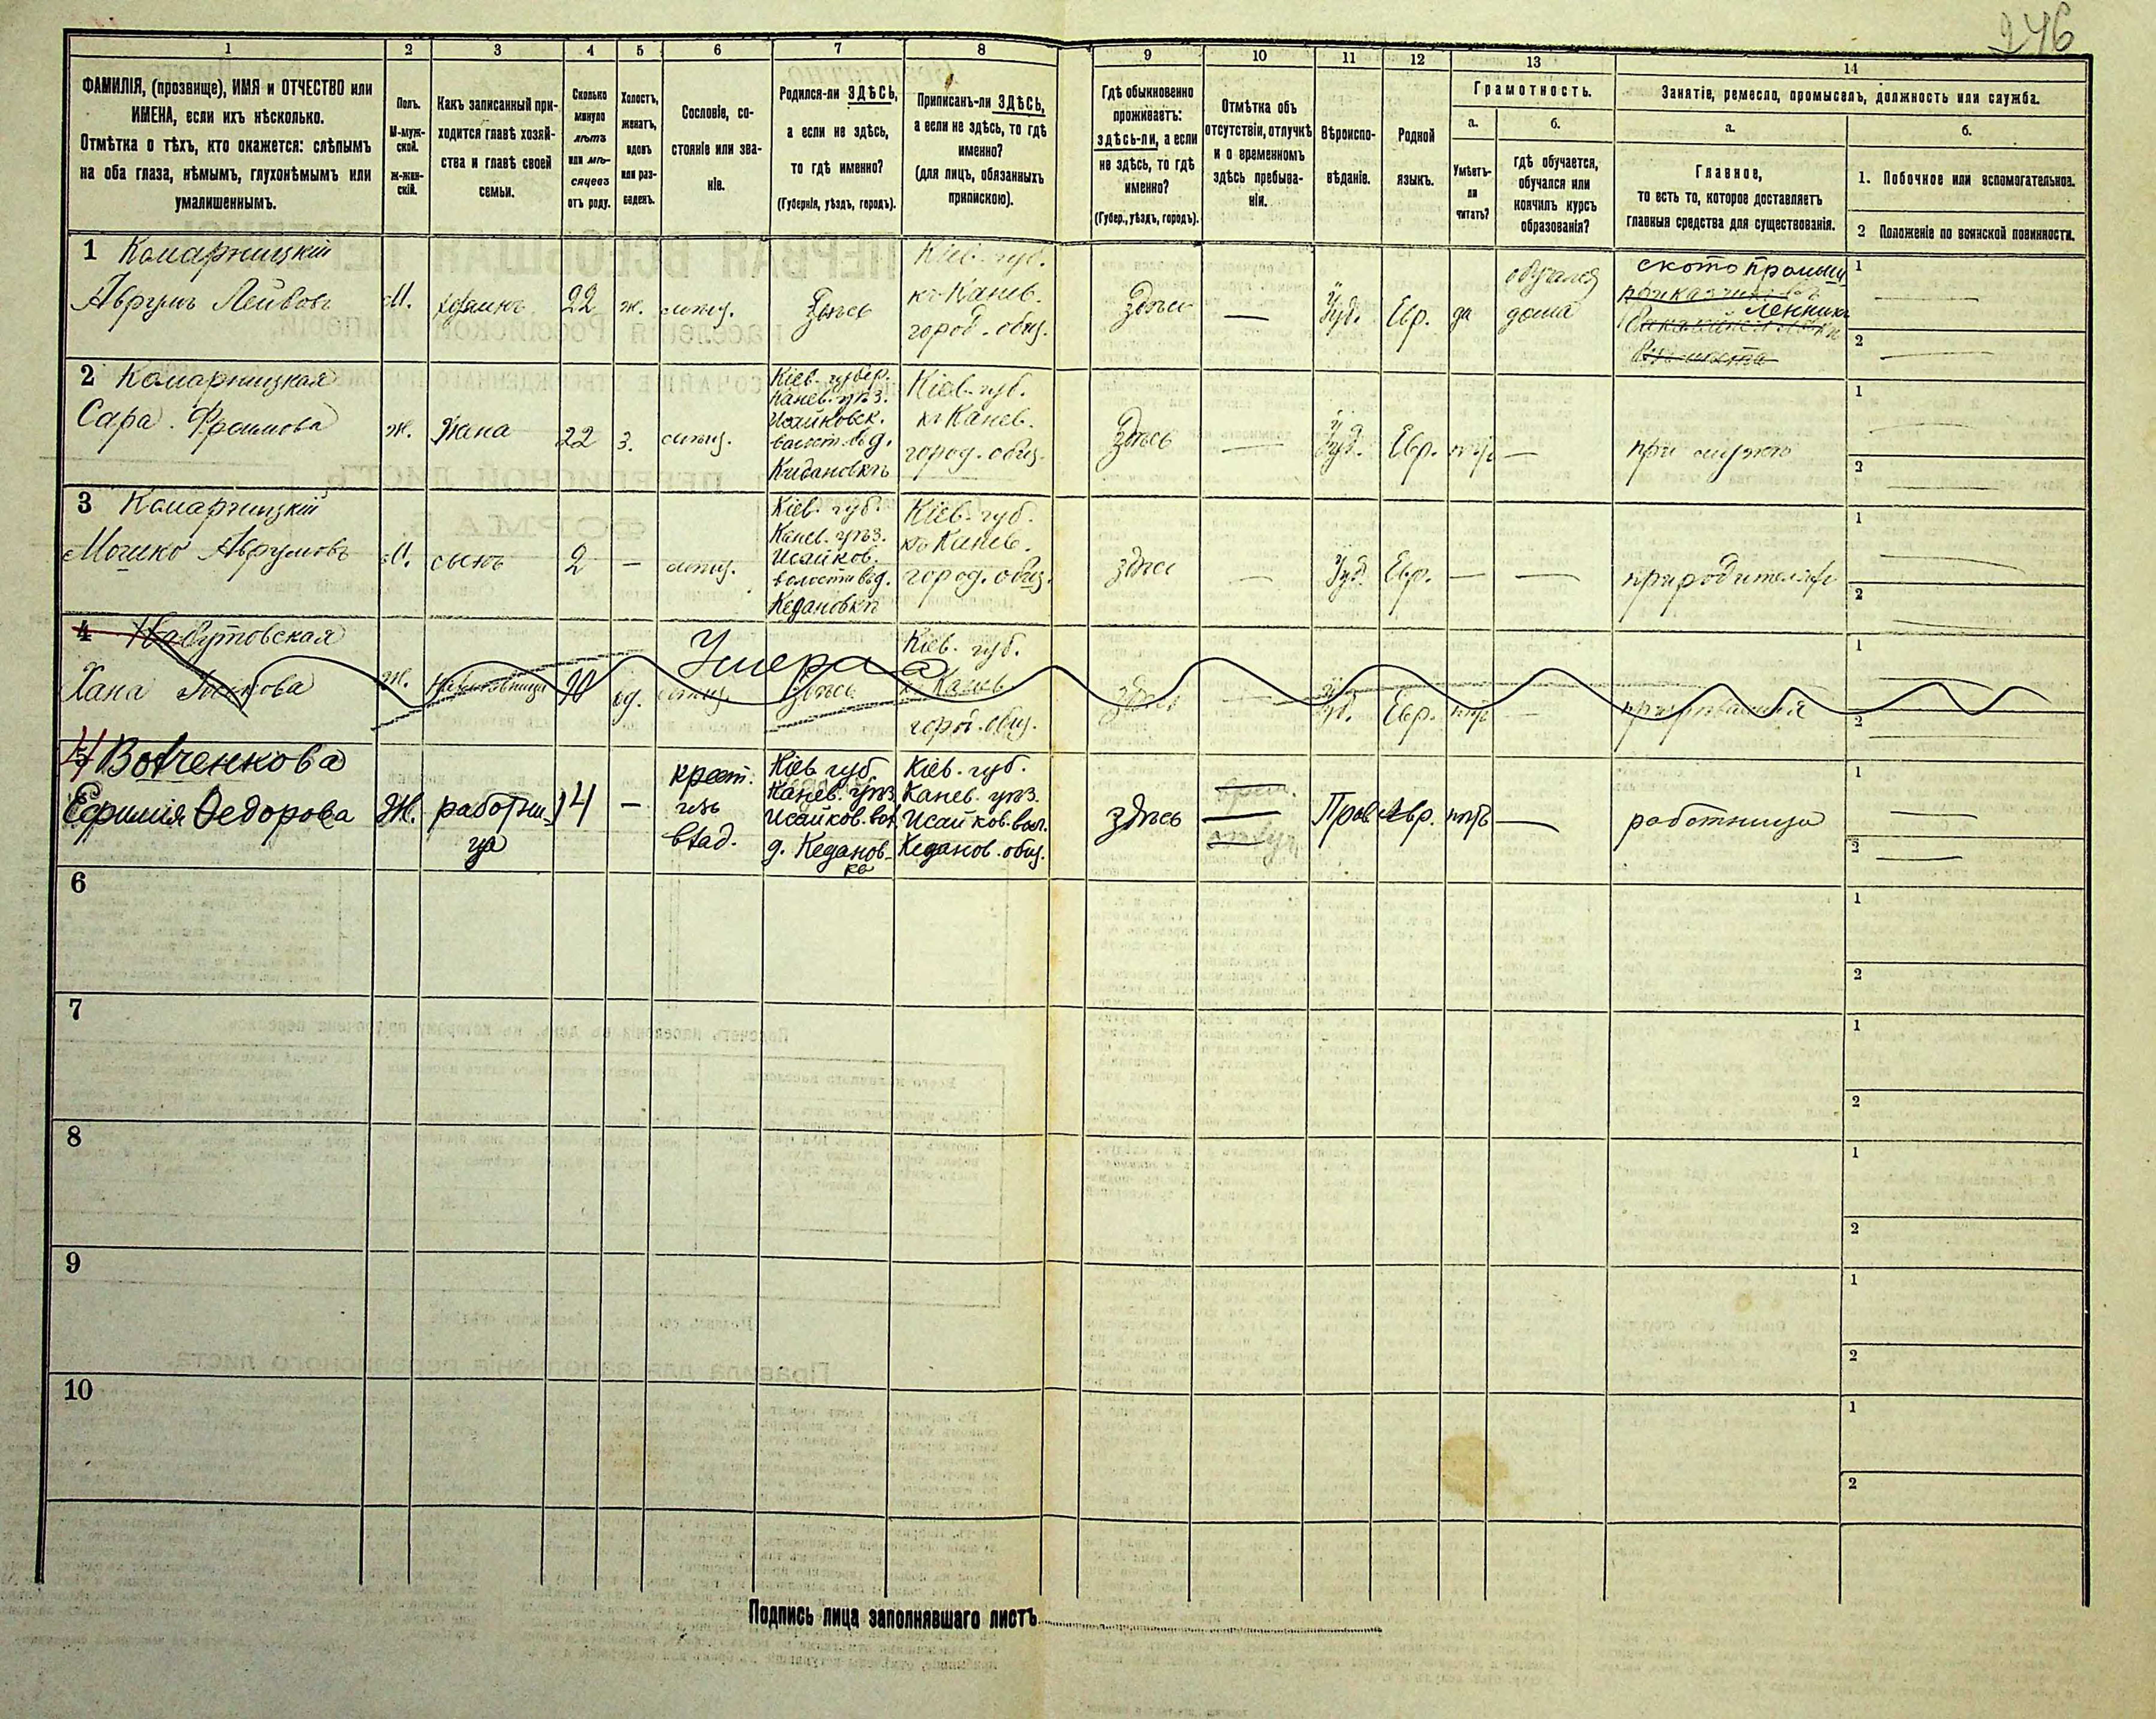 246
1 2 3 4 5 6 7 8 9 10 11 12 13 14
ФАМИЛІЯ, (прозвище), ИМЯ и ОТЧЕСТВО или
ИМЕНА, если ихъ нѣсколько.
Отмѣтка о тѣхъ, кто окажется: слѣпымъ
на оба глаза, нѣмымъ, глухонѣмымъ или
умалишеннымъ.
Полъ.
М-муж-
ской.
ж-жен-
скій.
Какъ записанный при-
ходится главѣ хозяй-
ства и главѣ своей
семьи.
Сколько
минуло
лѣтъ
или мѣ-
сяцевъ
отъ роду.
Холостъ,
женатъ,
вдовъ
или раз-
веденъ.
Сословіе, со-
стояніе или зва-
ніе.
Родился-ли ЗДѢСЬ,
а если не здѣсь,
то гдѣ именно?
(Губернія, уѣздъ, городъ).
Приписанъ-ли ЗДѢСЬ,
а если не здѣсь, то гдѣ
именно?
(для лицъ, обязанныхъ
припискою).
Гдѣ обыкновенно
проживаетъ:
здѣсь-ли, а если
не здѣсь, то гдѣ
именно?
(Губер., уѣздъ, городъ).
Отмѣтка объ
отсутствіи, отлучкѣ
и о временномъ
здѣсь пребыва-
ніи.
Вѣроиспо-
вѣданіе.
Родной
языкъ.
Грамотность.
а.
Умѣетъ-
ли
читать?
б.
гдѣ обучается,
обучался или
кончилъ курсъ
образованія?
Занятіе, ремесло, промыселъ, должность или служба.
а.
Главное,
то есть то, которое доставляетъ
главныя средства для существованія.
б.
1. Побочное или вспомогательное.
2 Положеніе по воинской повинности.
1 Комарницкій
Аврумъ Лейбовъ
М.
хозяинъ
22
ж.
мѣщ.
Здѣсь
Кіев. губ.
къ Канев.
город. общ.
Здѣсь
—
Іуд.
Евр.
да
обучался
дома
ското промыш
ленникъ
1 —
2 —
2 Комарницкая
Сара Фроимова
ж.
Жена
22
з.
мѣщ.
Кіев. губер.
Канев. уѣз.
Исайковск.
волост. въ д.
Кидановкѣ
Кіев. губ.
къ Канев.
город. общ.
Здѣсь
—
Іуд.
Евр.
нѣтъ
—
при мужѣ
1 —
2 —
3 Комарницкій
Мошко Аврумовъ
М.
сынъ
2
—
мѣщ.
Кіев. губ.
Канев. уѣз.
Исайков.
волости въ д.
Кедановкѣ
Кіев. губ.
къ Канев.
город. общ.
здѣсь
—
Іуд.
Евр.
—
—
при родителяхъ
1 —
2 —
4
Хана
Умерла
ж.
вд.
здѣсь
Кіев. губ.
к. Канев
город. общ.
здѣсь
—
Іуд.
Евр.
нѣтъ
—
1 —
2
4 Вовченкова
Ефимія Федорова
Ж.
работни-
ца
14
—
крест.
изъ
влад.
Кіев. губ.
Канев. уѣз.
Исайков. вол.
д. Кеданов-
ка
Кіев. губ.
Канев. уѣз.
Исайков. вол.
Кеданов. общ.
здѣсь
—
Прав.
нѣтъ
—
работница
1 —
2 —
6
1
2
7
1
2
8
1
2
9
1
2
10
1
2
Подпись лица заполнявшаго листъ